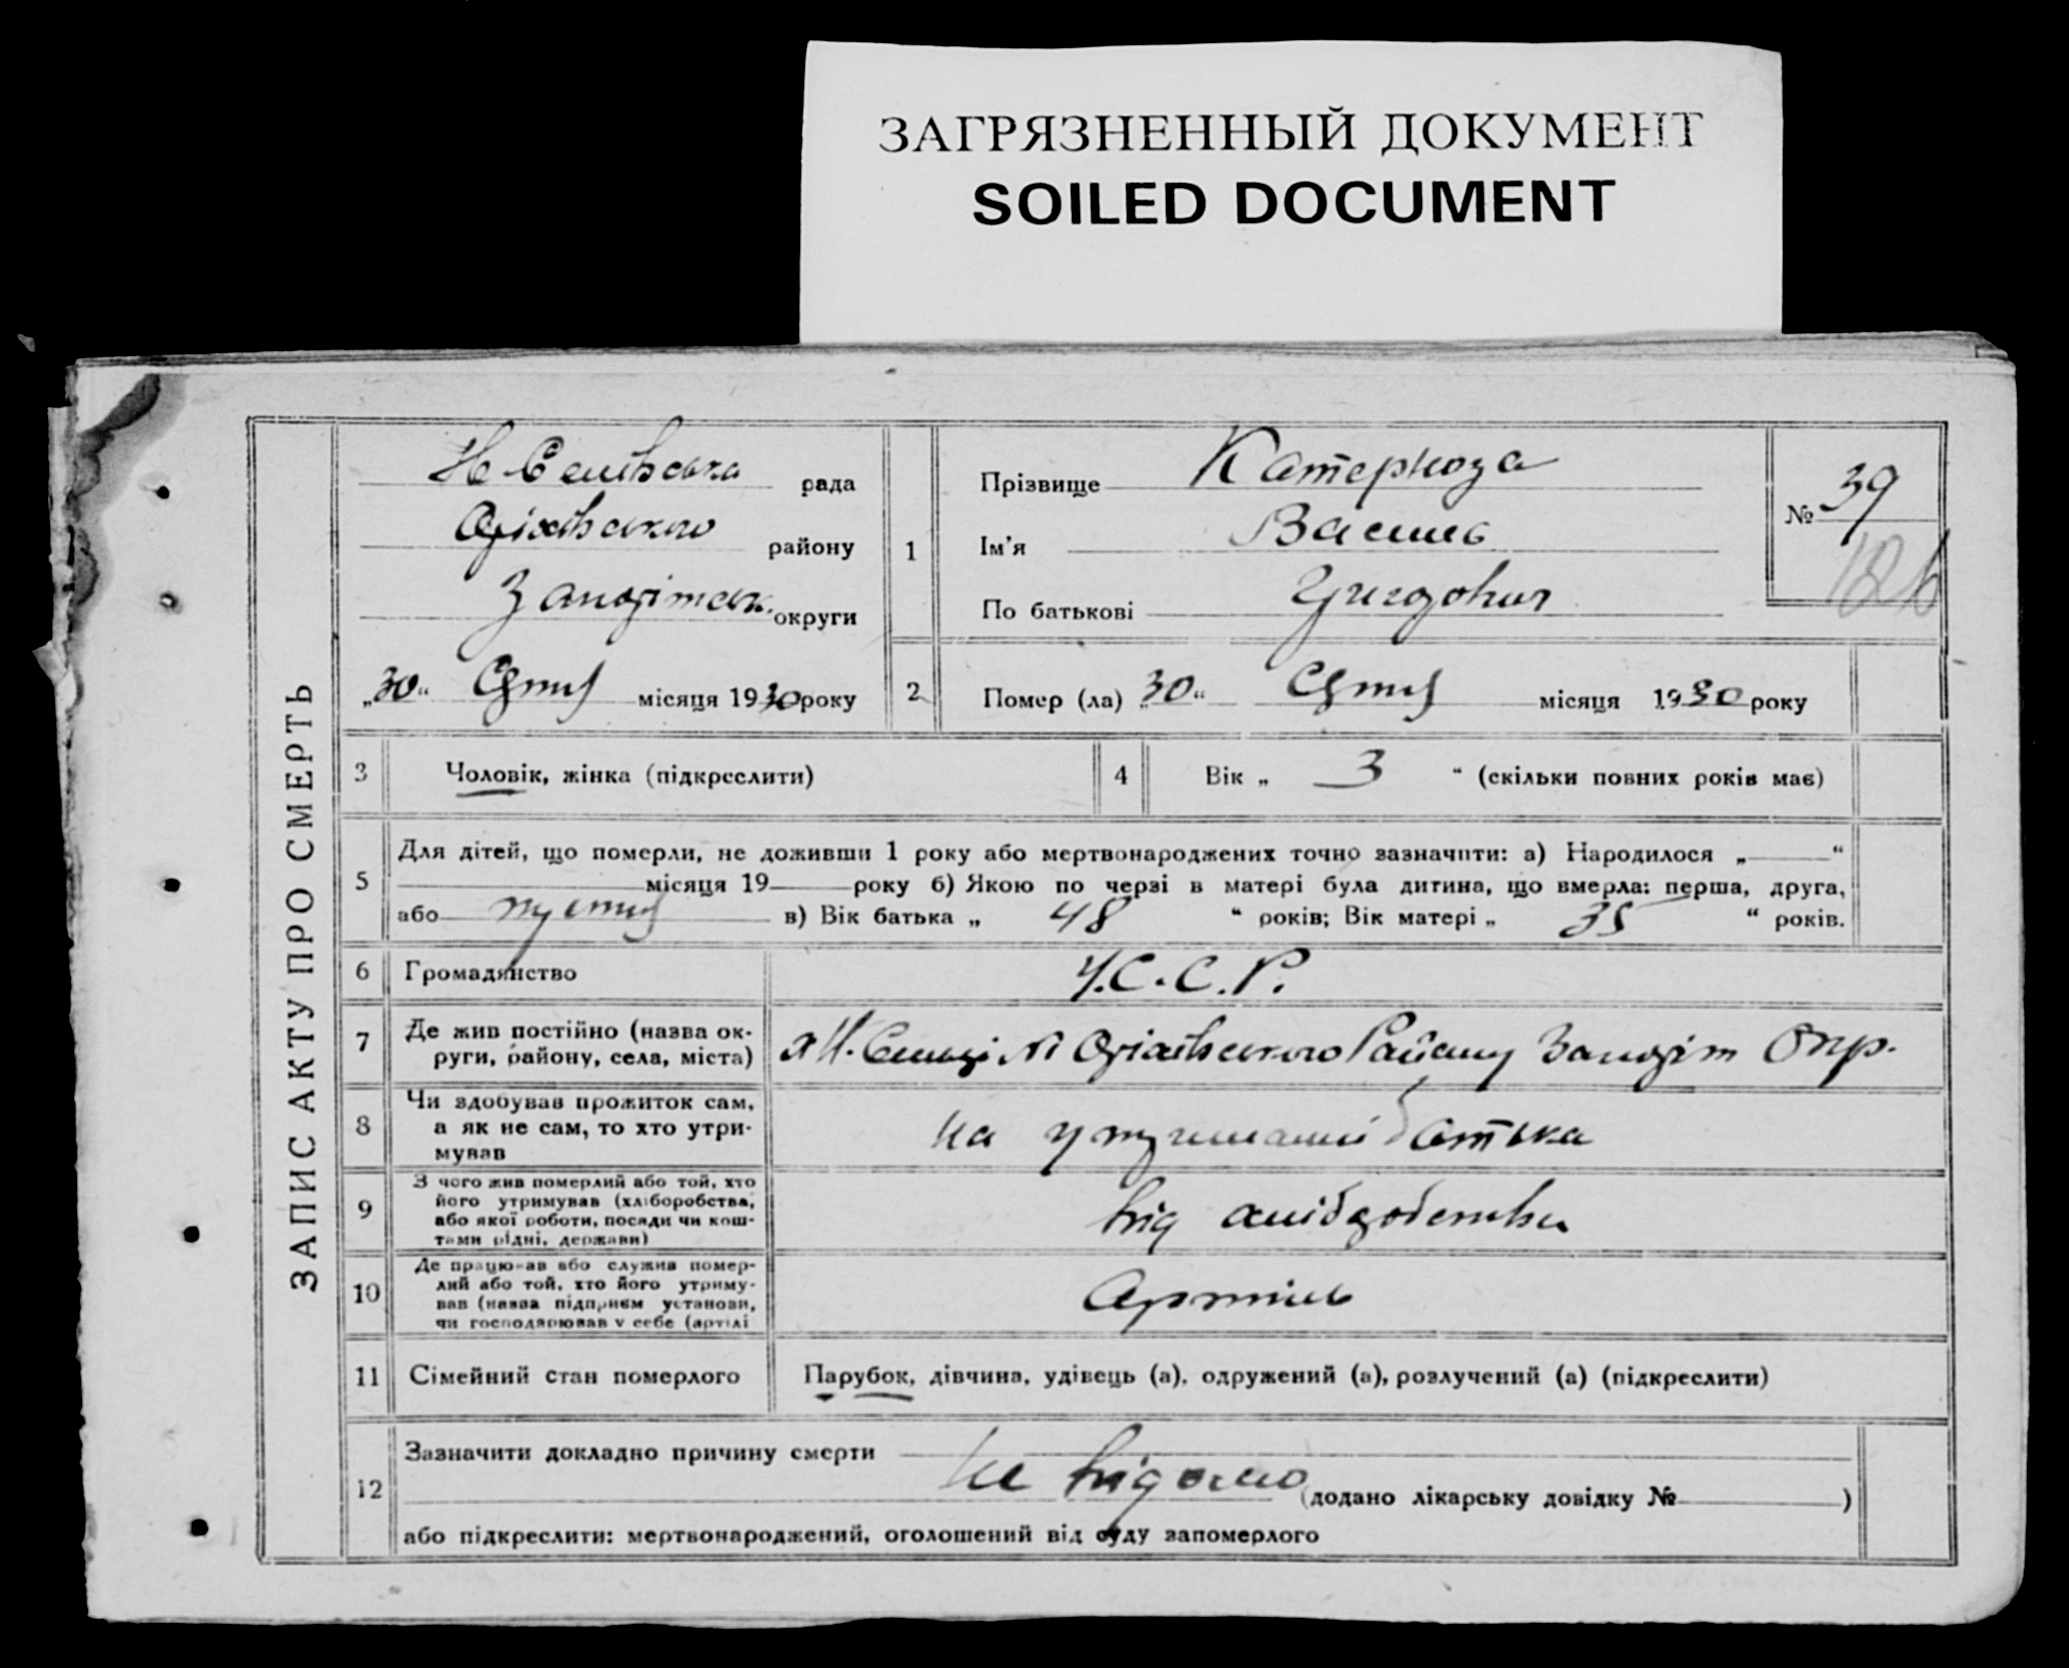 ЗАГРЯЗНЕННЫЙ ДОКУМЕНТ
SOILED DOCUMENT
ЗАПИС АКТУ ПРО СМЕРТЬ
рада
району
округи
„30“ місяця 1930 року
1
Прізвище
Ім'я Василь
По батькові
№ 39
2
Помер (ла) „30“ місяця 1930 року
3
Чоловік, жінка (підкреслити)
4
Вік „ 3 “ (скільки повних років має)
5
Для дітей, що померли, не доживши 1 року або мертвонароджених точно зазначити: а) Народилося „ “
місяця 19 року б) Якою по черзі в матері була дитина, що вмерла: перша, друга,
або в) Вік батька „ 48 “ років; Вік матері „ 35 “ років.
6
Громадянство
У.С.С.Р.
7
Де жив постійно (назва ок-
руги, району, села, міста)
Району Окр.
8
Чи здобував прожиток сам,
а як не сам, то хто утри-
мував
на утриманні батька
9
З чого жив померлий або той, хто
його утримував (хліборобства,
або якої роботи, посади чи кош-
тами рідні, держави)
від
10
Де працював або служив помер-
лий або той, хто його утриму-
вав (назва підприєм установи,
чи господарював у себе (артілі
Артіль
11
Сімейний стан померлого
Парубок, дівчина, удівець (а), одружений (а), розлучений (а) (підкреслити)
12
Зазначити докладно причину смерти
не відомо (додано лікарську довідку № )
або підкреслити: мертвонароджений, оголошений від суду запомерлого